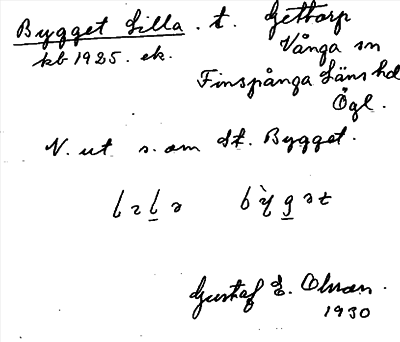 Bygget Lilla . t. Gettorp
kb 1925. ek. Vånga sn
Finspånga Läns hd
Ögl.
N. ut s. om St. Bygget.
Gustaf E. Olsson.
1930